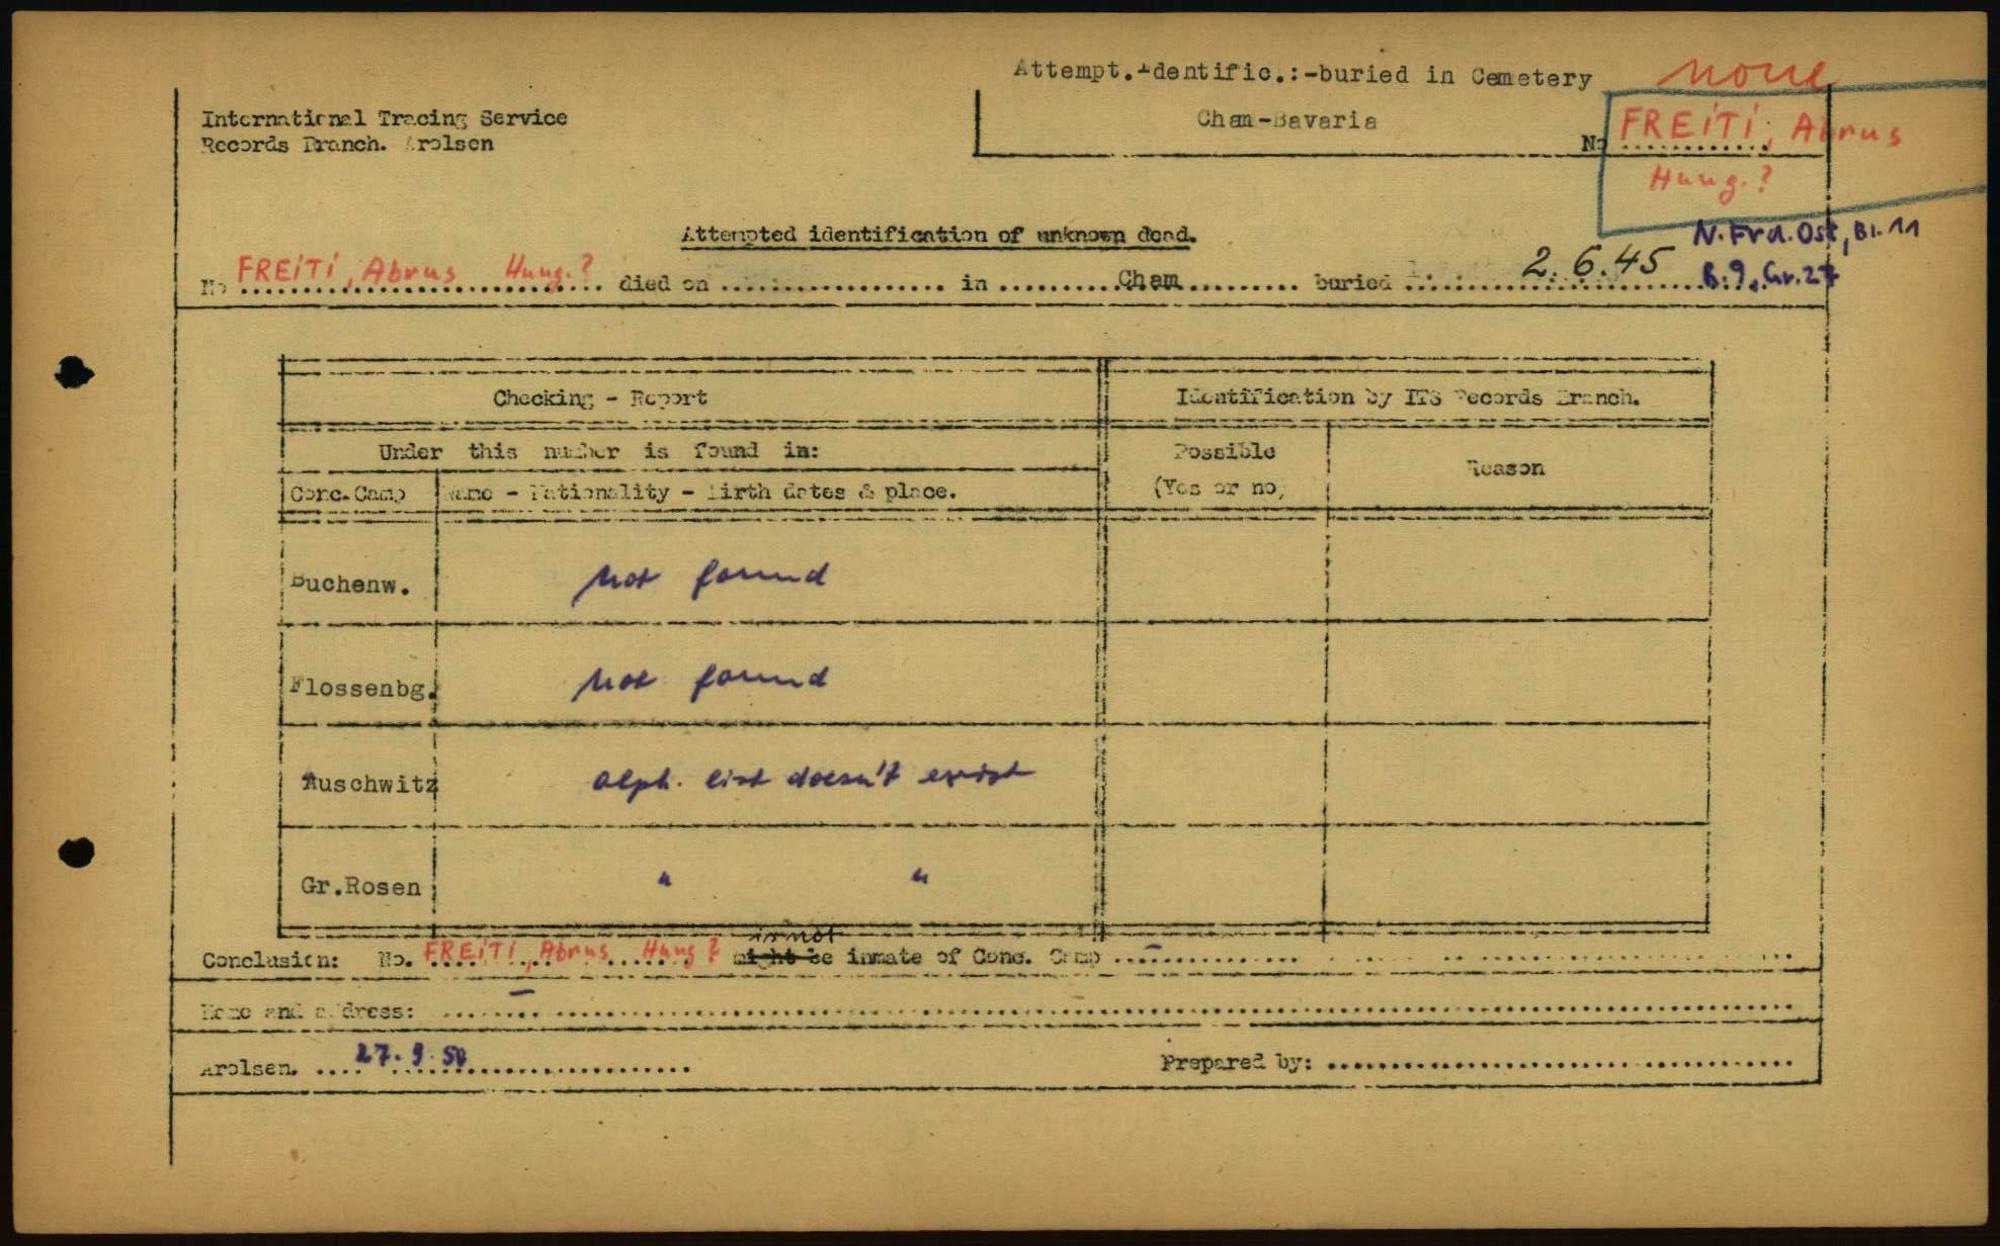 Attempt. Identific.:-buried in Cemetery none
International Tracing Service
Records Branch. Arolsen
Cham-Bavaria
No FREiTi, Abrus
Hung.?
Attempted identification of unknown dead.
N.Frd.Ost, Bl.11
No FREiTi, Abrus Hung.? died on .......... in ..........Cham.......... buried 2.6.45 R.9, Gr.27
Checking - Report Identification by ITS Records Branch.
Under this number is found in: Possible (Yes or no) Reason
Conc.Camp Name - Nationality - Birth dates & place.
Buchenw. not found
Flossenbg. not found
Auschwitz alph. list doesn't exist
Gr.Rosen " "
is not
Conclusion: No. FREiTi, Abrus Hung? might be inmate of Conc. Camp –
Name and address: –
Arolsen. 27.9.50 Prepared by: